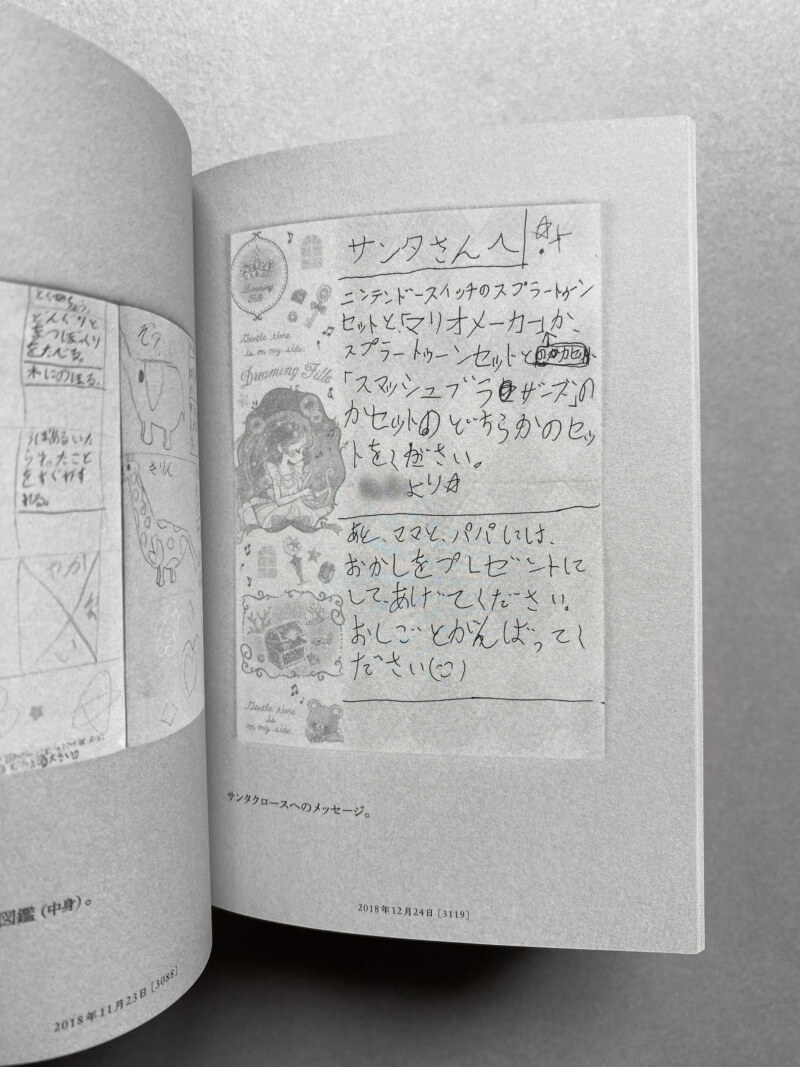 とくちょう
どんぐりと
まつぼっくり
をたべる。
木にのぼる。
ぞう
きりん
図鑑（中身）。
2018年11月23日［3088］
サンタさんへ
ニンテンドースイッチのスプラートゥーン
セットと、「マリオメーカー」か、
スプラートゥーンセットと
「スマッシュブラザーズ」の
かセットのどちらかのセッ
トをください。
より☆
あと、ママと、パパには、
おかしをプレゼントに
して、あげてください。
おしごとがんばってく
ださい
Dreaming Fille
Gentle time
is
in my side.
Dreaming Fille
Gentle time
is
in my side.
サンタクロースへのメッセージ。
2018年12月24日［3119］